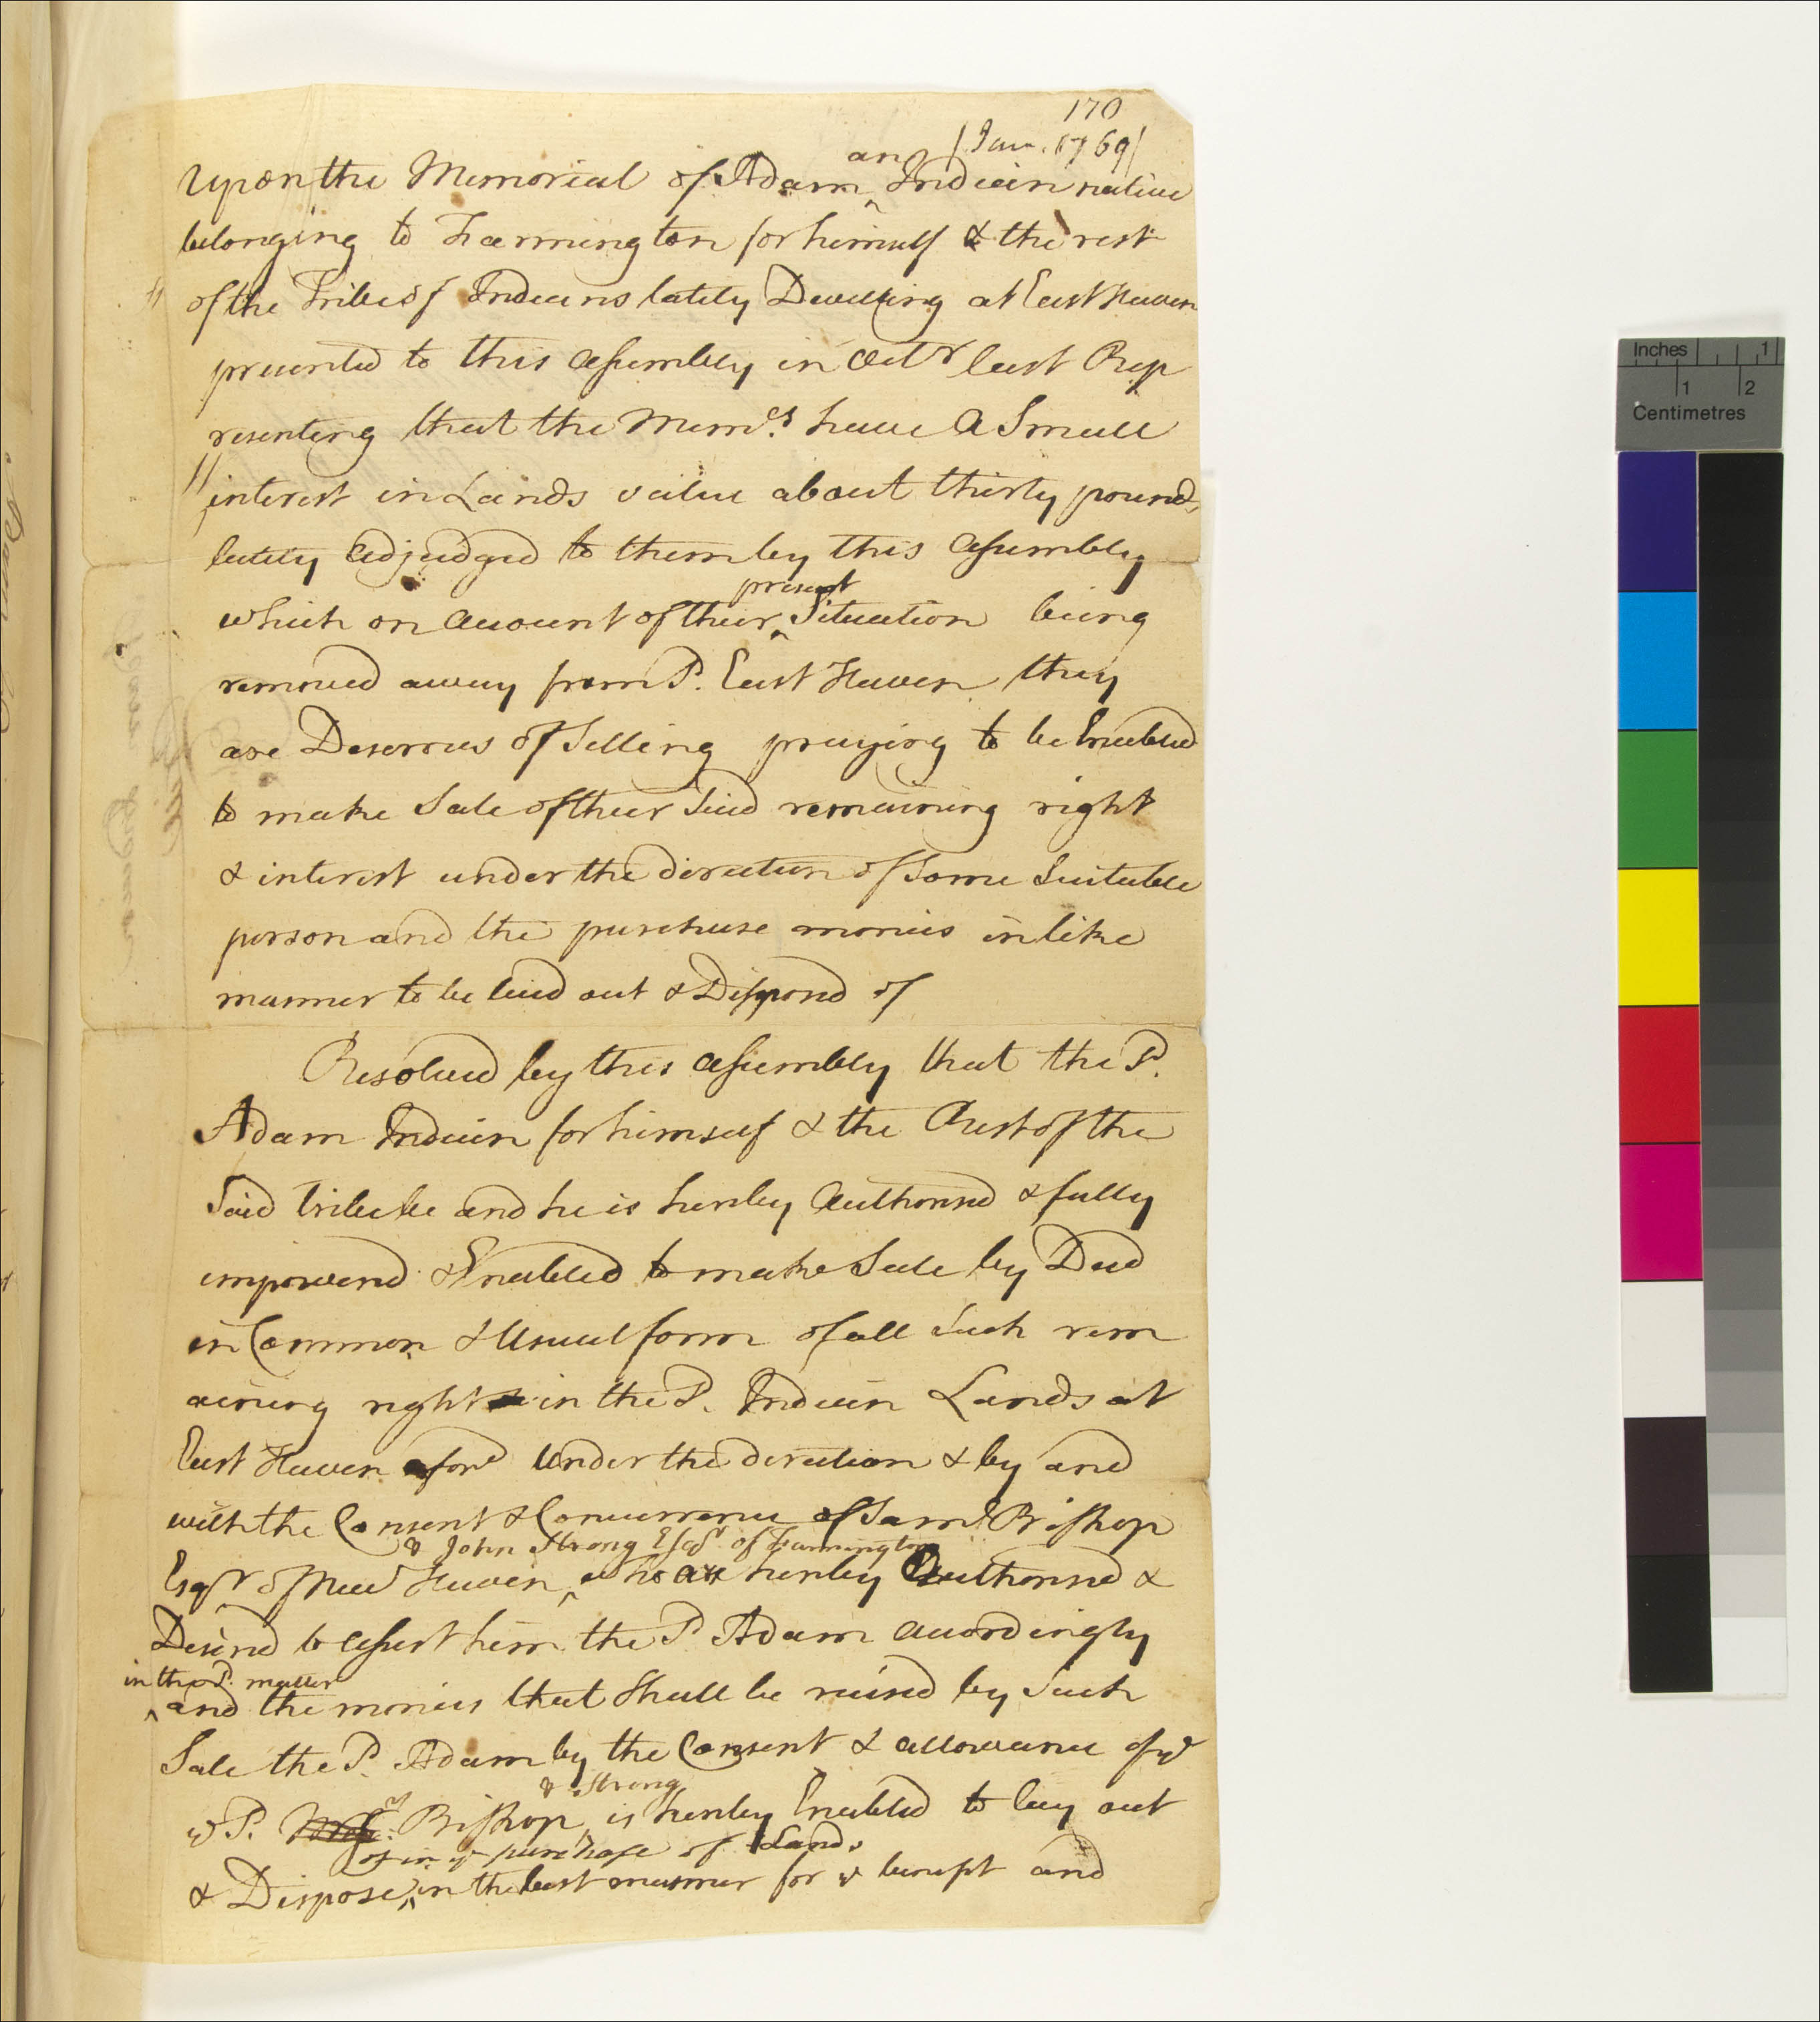 170
/Jan. 1769/
an
Upon the Memorial of Adam ^ Indian native
belonging to Farmington for himself & the rest
of the Tribe of Indians lately Dwelling at East Haven
presented to this assembly in Octr last Rep
resenting that the Memes. have a Small
interest in Lands value about thirty pounds
lately adjudged to them by this assembly
present
which on account of their ^ Situation being
removed away from Sd. East Haven they
are Desorous of Selling praying to be Enabled
to make Sale of their Said remaining right
& interest under the direction of Some Suitable
person and the purchase monies in like
manner to be laid out & Disposed of
Resolved by this assembly that the Sd.
Adam Indian for himself & the Rest of the
Said Tribe be and he is hereby Authorised & fully
impowered & Enabled to make Sale by Deed
in Common & Usual form of all Such rem
aining right in the Sd. Indian Lands at
East Haven aford Under the direction & by and
with the Consent & Concurrence of Saml Bishop
& John Strong Esqr. of Farmington
Esqr of New Haven ^ who are hereby Authorised &
Desired to assist him the Sd Adam accordingly
in the Sd. matter
^ and the monies that Shall be raised by Such
Sale the Sd. Adam by the Consent & allowance of ye
& Strong
Sd. Bishop ^ is hereby Enabled to lay out
of in ye purchase of Lands
& Dispose ^ in the best manner for ye benefit and
Inches 1
1 2
Centimetres